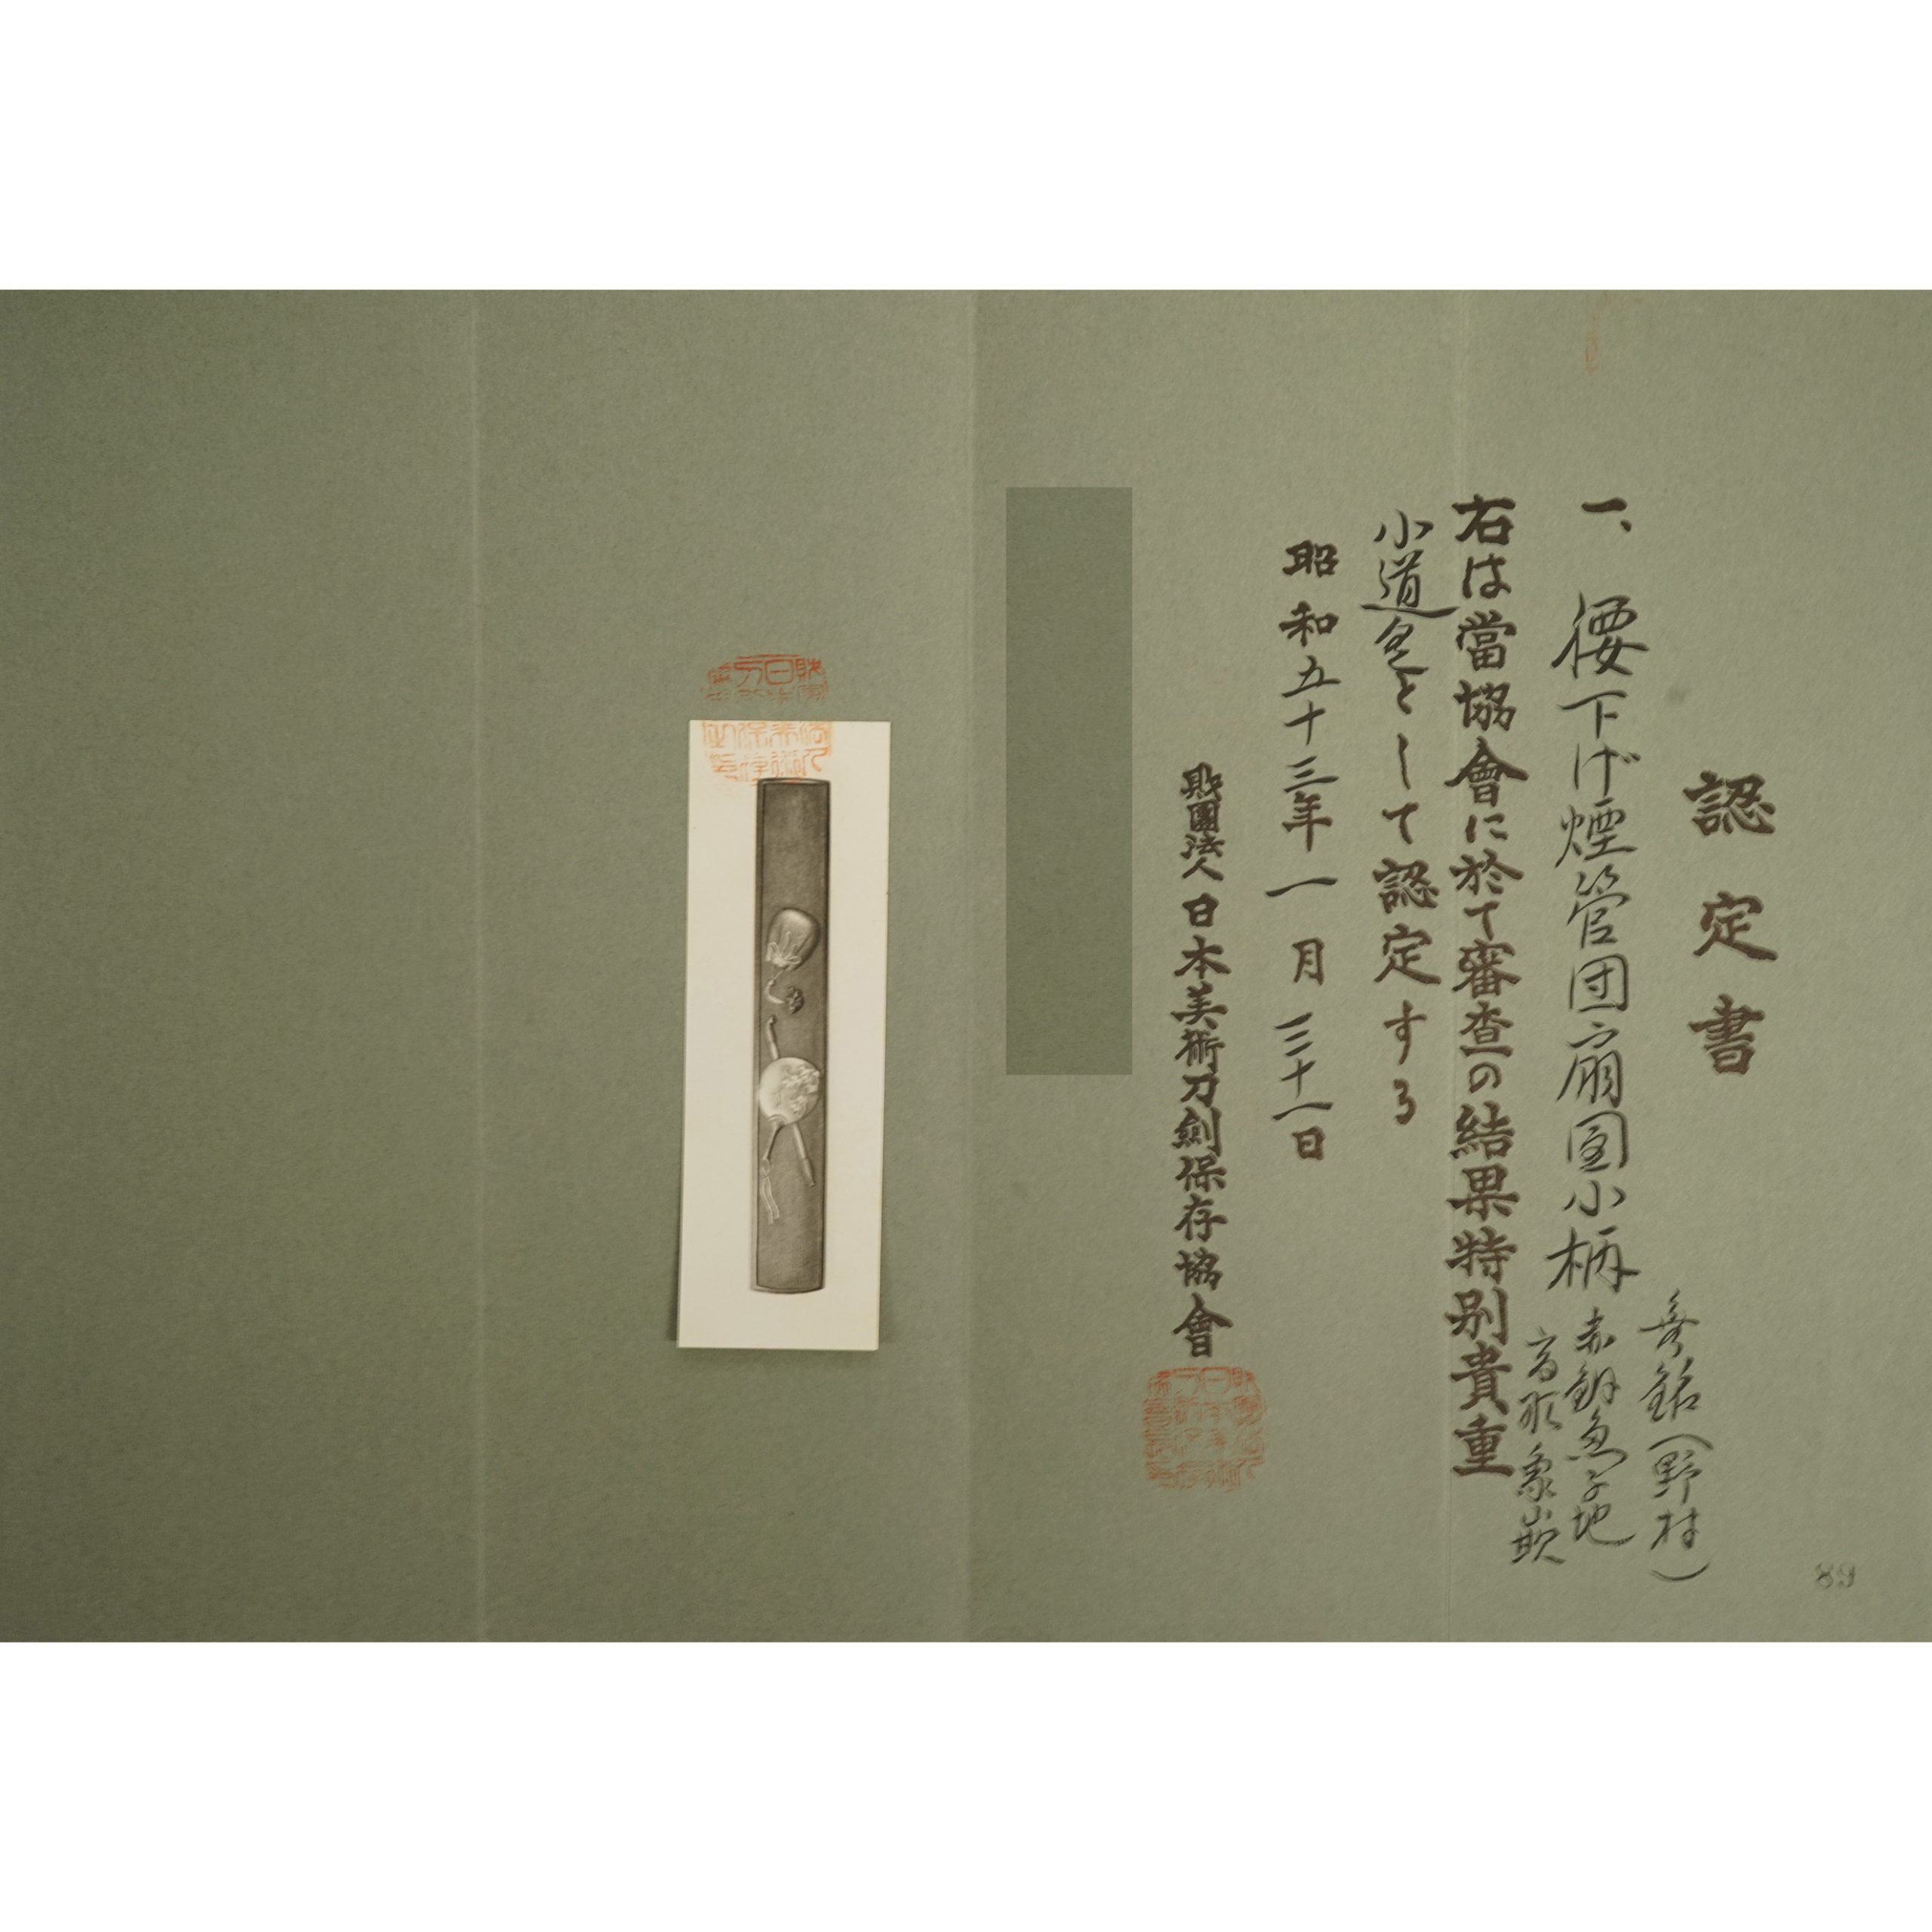 認定書
一、腰下げ煙管団扇図小柄
無銘(野村)
赤銅魚子地
高彫象嵌
右は當協會に於て審査の結果特別貴重
小道具として認定する
昭和五十三年一月三十一日
財團法人日本美術刀劍保存協會
89